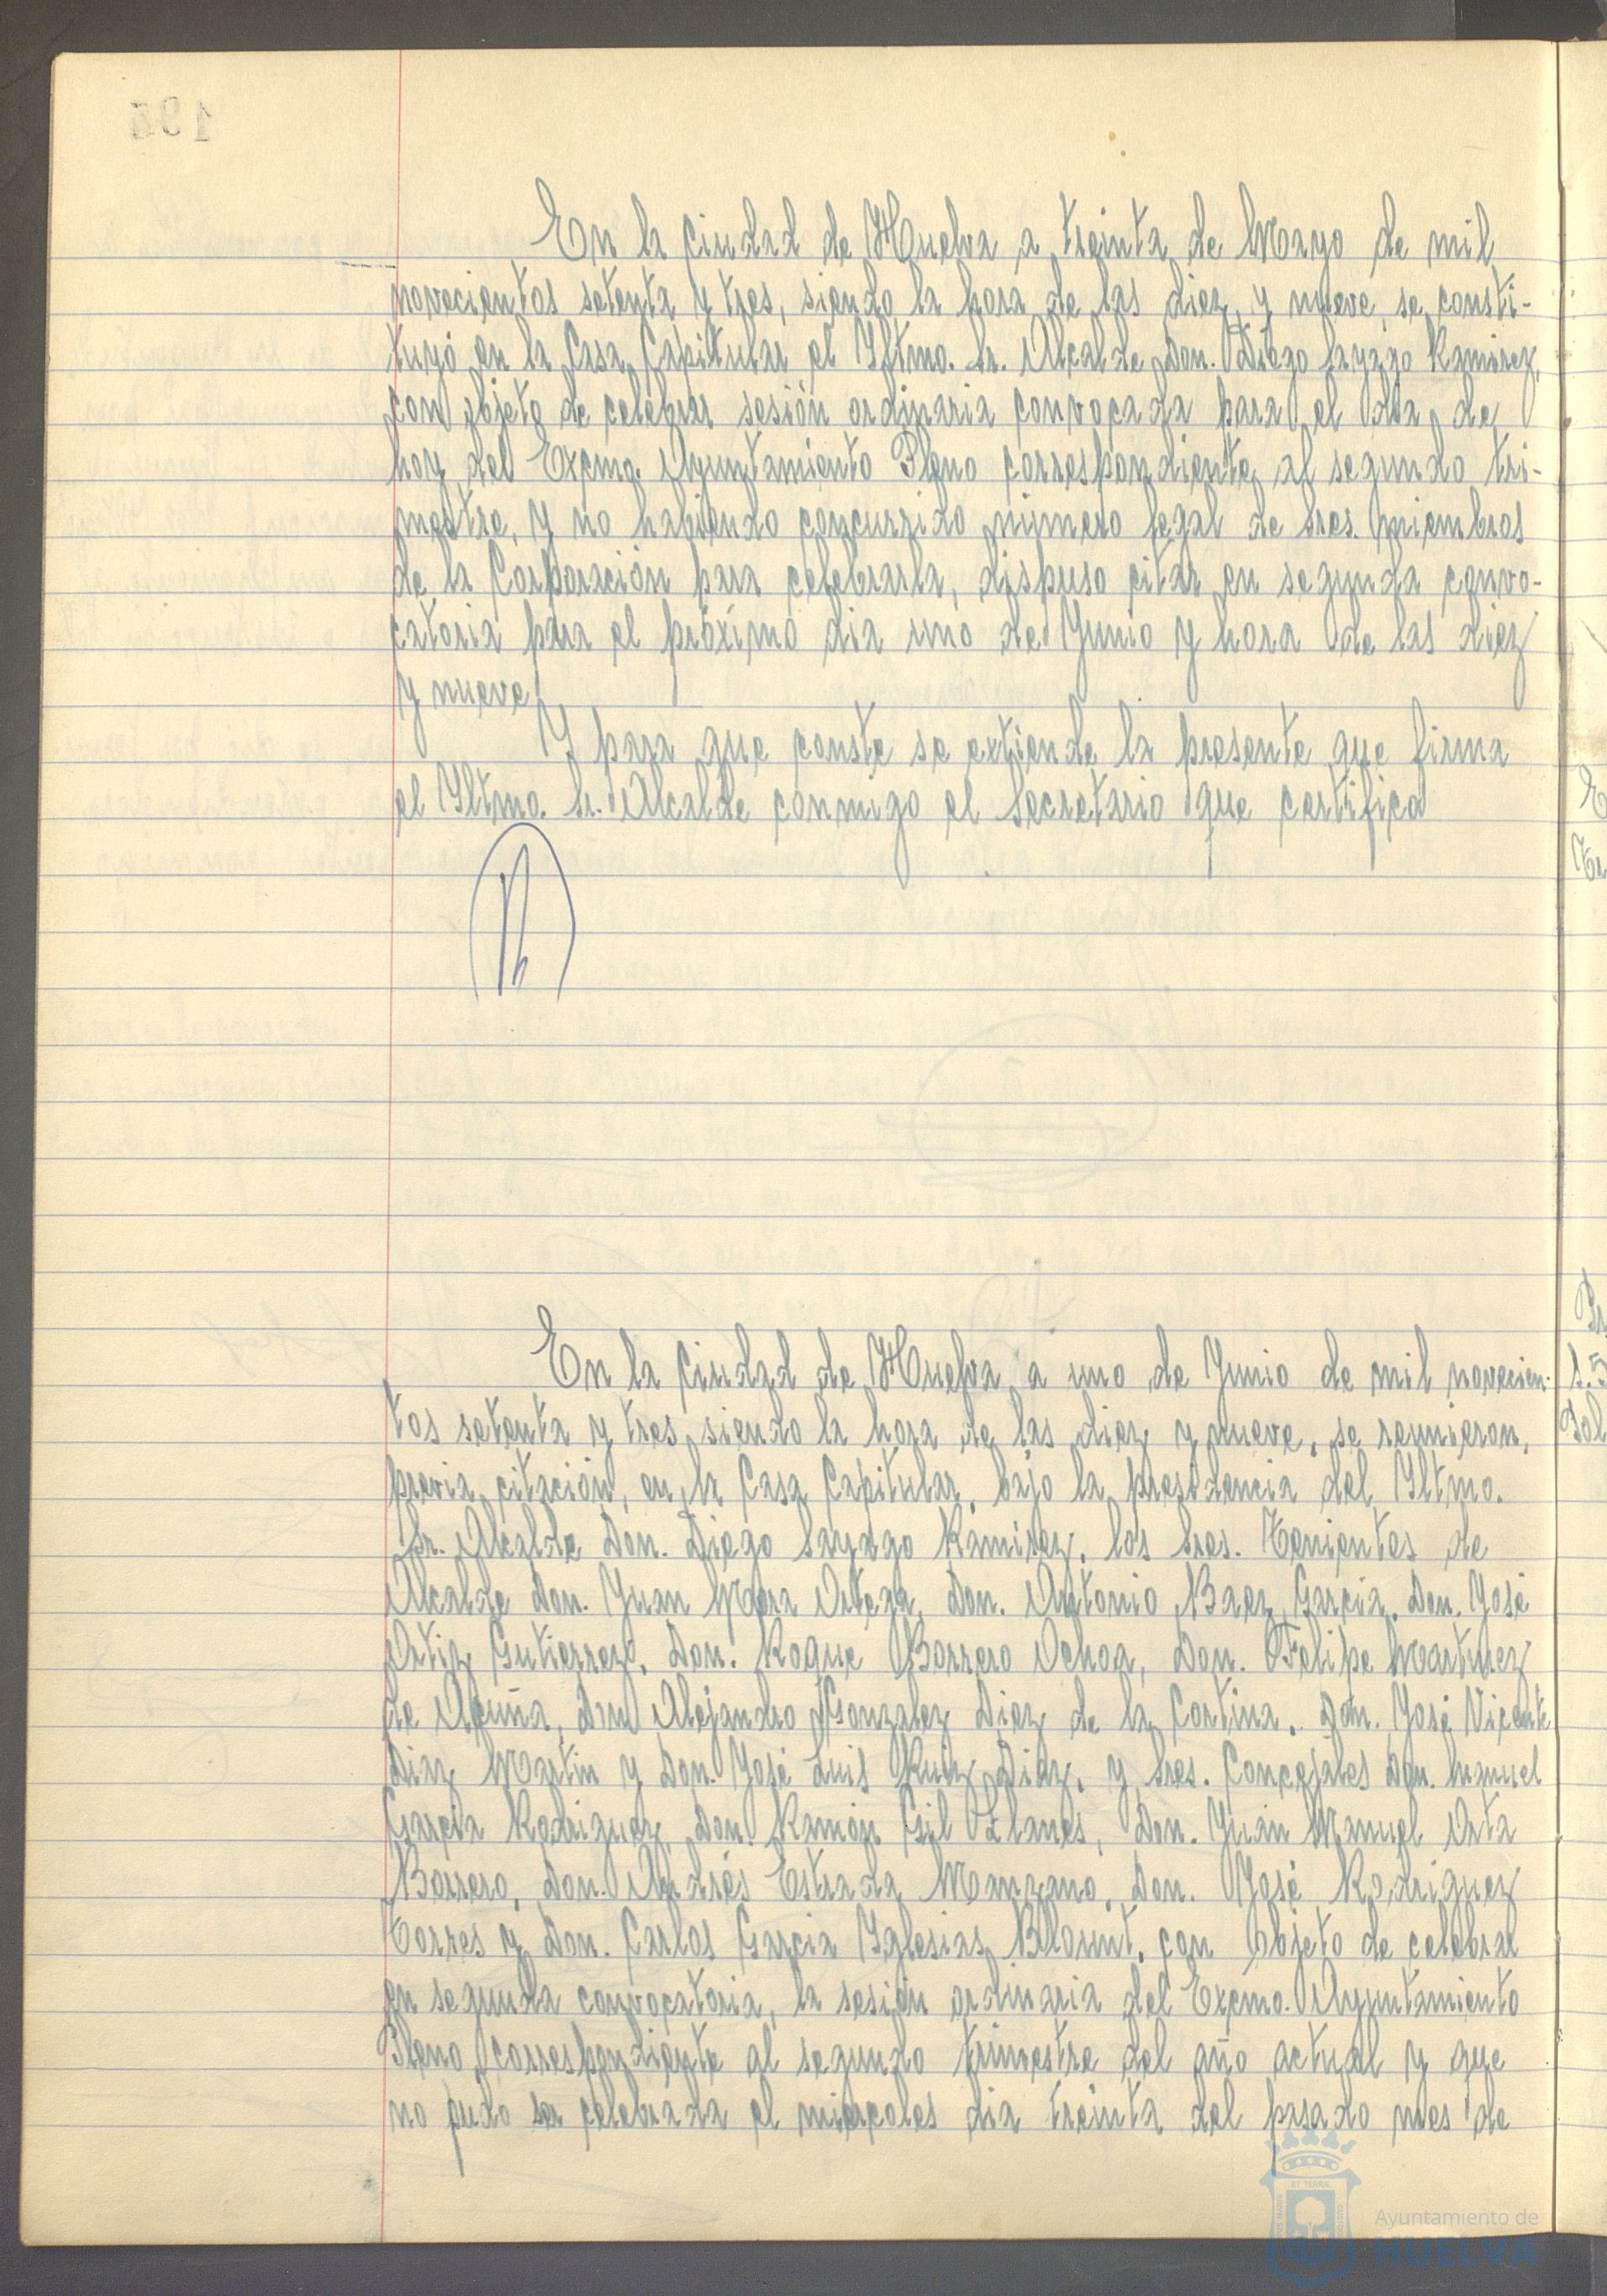 En la Ciudad de Huelva a treinta de Mayo de mil
novecientos setenta y tres, siendo la hora de las diez y nueve, se consti-
tuyó en la Casa Capitular el Yltmo. Sr. Alcalde Don. Diego Sayago Ramirez,
con objeto de celebrar sesión ordinaria convocada para el dia de
hoy del Excmo. Ayuntamiento Pleno correspondiente al segundo tri-
mestre, y no habiendo concurrido número legal de Sres. miembros
de la Corporación para celebrarla, dispuso citar en segunda convo-
catoria para el próximo dia uno de Junio y hora de las diez
y nueve.
Y para que conste se extiende la presente que firma
el Yltmo. Sr. Alcalde conmigo el Secretario que certifica
En la Ciudad de Huelva a uno de Junio de mil novecien-
tos setenta y tres, siendo la hora de las diez y nueve, se reunieron,
previa citación, en la Casa Capitular, bajo la presidencia del Yltmo.
Sr. Alcalde Don. Diego Sayago Ramirez, los Sres. Tenientes de
Alcalde Don. Juan Mora Ortega, Don. Antonio Baez Garcia, Don. José
Ortiz Gutierrez, Don. Roque Borrero Ochoa, Don. Felipe Martinez
de Acuña, Don Alejandro Gonzalez Diez de la Cortina, Don. José Vicente
Diaz Martin y Don. José Luis Ruiz Diaz, y Sres. Concejales Don. Manuel
Garcia Rodriguez, Don. Ramón Gil Llanes, Don. Juan Manuel Orta
Borrero, Don. Andrés Estrada Manzano, Don. José Rodriguez
Torres y Don. Carlos Garcia Yglesias Blount, con objeto de celebrar
en segunda convocatoria, la sesión ordinaria del Excmo. Ayuntamiento
Pleno correspondiente al segundo trimestre del año actual y que
no pudo ser celebrada el miercoles dia treinta del pasado mes de
Ayuntamiento de
HUELVA